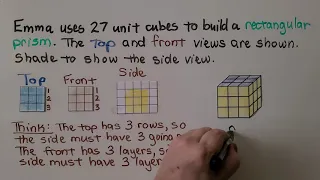 Emma uses 27 unit cubes to build a rectangular
prism. The top and front views are shown.
Shade to show the side view.
Top Front Side
1 1
2 2
3 3
Think: The top has 3 rows, so
the side must have 3 going
The front has 3 layers, so
side must have 3